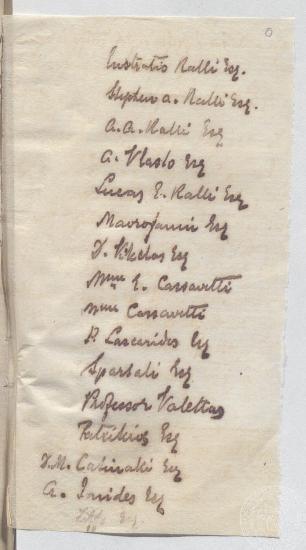 Eustratio Ralli Esq.
Stephen A. Ralli Esq.
A. A. Ralli Esq
A. Vlasto Esq
Lucas E. Ralli Esq
Mavrojanni Esq
D. Vikelas Esq
Mme E. Cassavetti
Mme Cassavetti
P. Lascarides Esq
Spartali Esq
Professor Valettas
Patrikios Esq
D. M. Cabinaki Esq
A. Ionides Esq
Esq